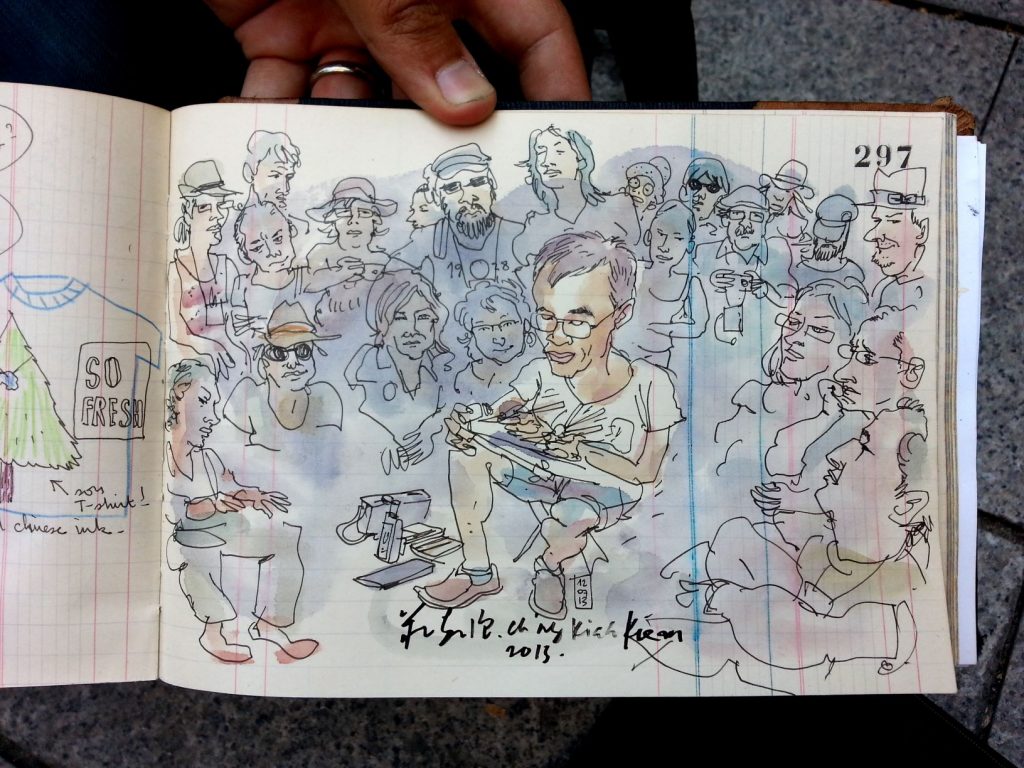 297
SO
FRESH
son
T-shirt!
chinese ink.
1978
12
09
13
Ch'ng Kiah Kiean
2013.